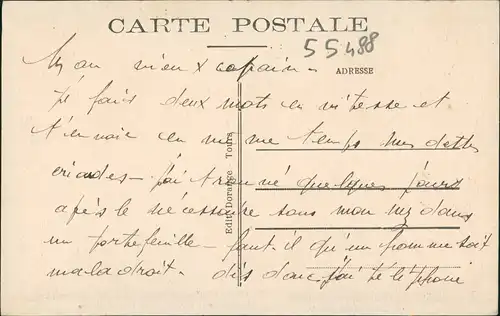 CARTE POSTALE
55488
ADRESSE
Mon vieux copain -
Je fais deux mots en vitesse et
t'envoie en même temps mes dettes
criardes - j'ai trouvé quelques jours
après le nécessaire sous mon nez dans
un portefeuille - faut-il qu'un homme soit
maladroit. dis donc j'ai téléphoné
Edit. Dorange Tours